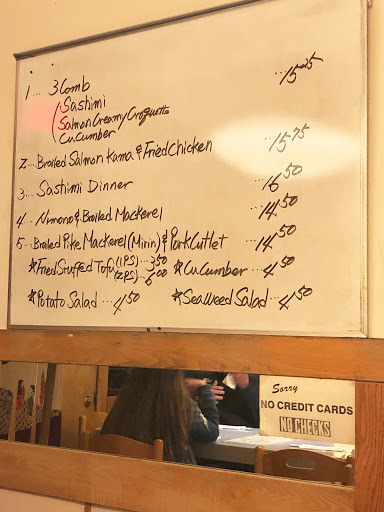 1... 3 Comb ...15.25
Sashimi
Salmon Creamy Croquette
Cucumber
2... Broiled Salmon Kama & Fried Chicken ...15.75
3... Sashimi Dinner ...16.50
4... Nimono & Broiled Mackerel ...14.50
5... Broiled Pike Mackerel (Mirin) & Pork Cutlet ...14.50
★Fried Stuffed Tofu (1PS)...3.50 ★Cucumber ...4.50
(2PS)...6.00
★Potato Salad ...4.50 ★Seaweed Salad ...4.50
Sorry
NO CREDIT CARDS
NO CHECKS